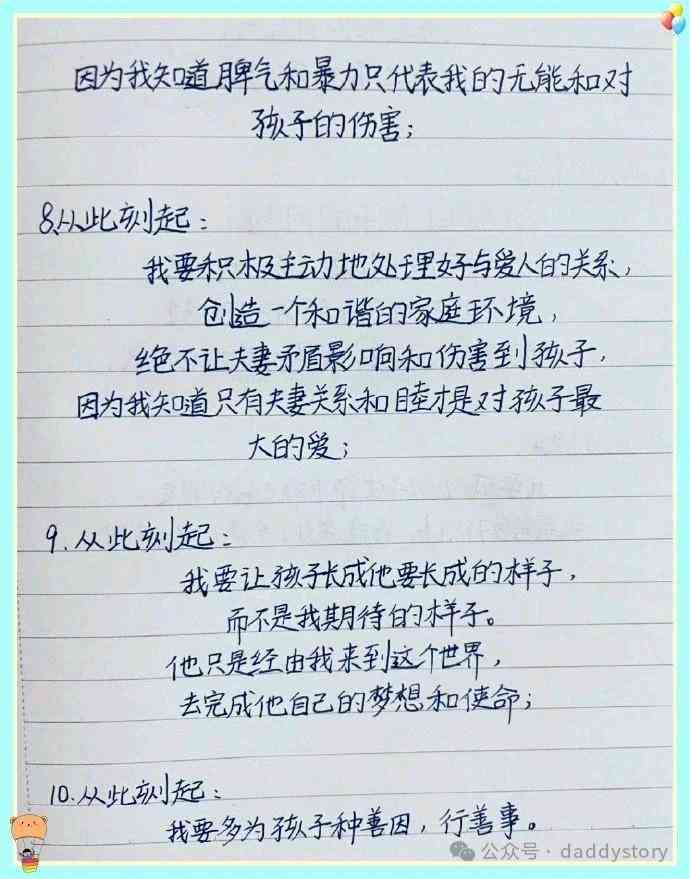 因为我知道脾气和暴力只代表我的无能和对
孩子的伤害；
8.从此刻起：
我要积极主动地处理好与爱人的关系，
创造一个和谐的家庭环境，
绝不让夫妻矛盾影响和伤害到孩子，
因为我知道只有夫妻关系和睦才是对孩子最
大的爱；
9.从此刻起：
我要让孩子长成他要长成的样子，
而不是我期待的样子。
他只是经由我来到这个世界，
去完成他自己的梦想和使命；
10.从此刻起：
我要多为孩子种善因，行善事。
公众号·daddystory